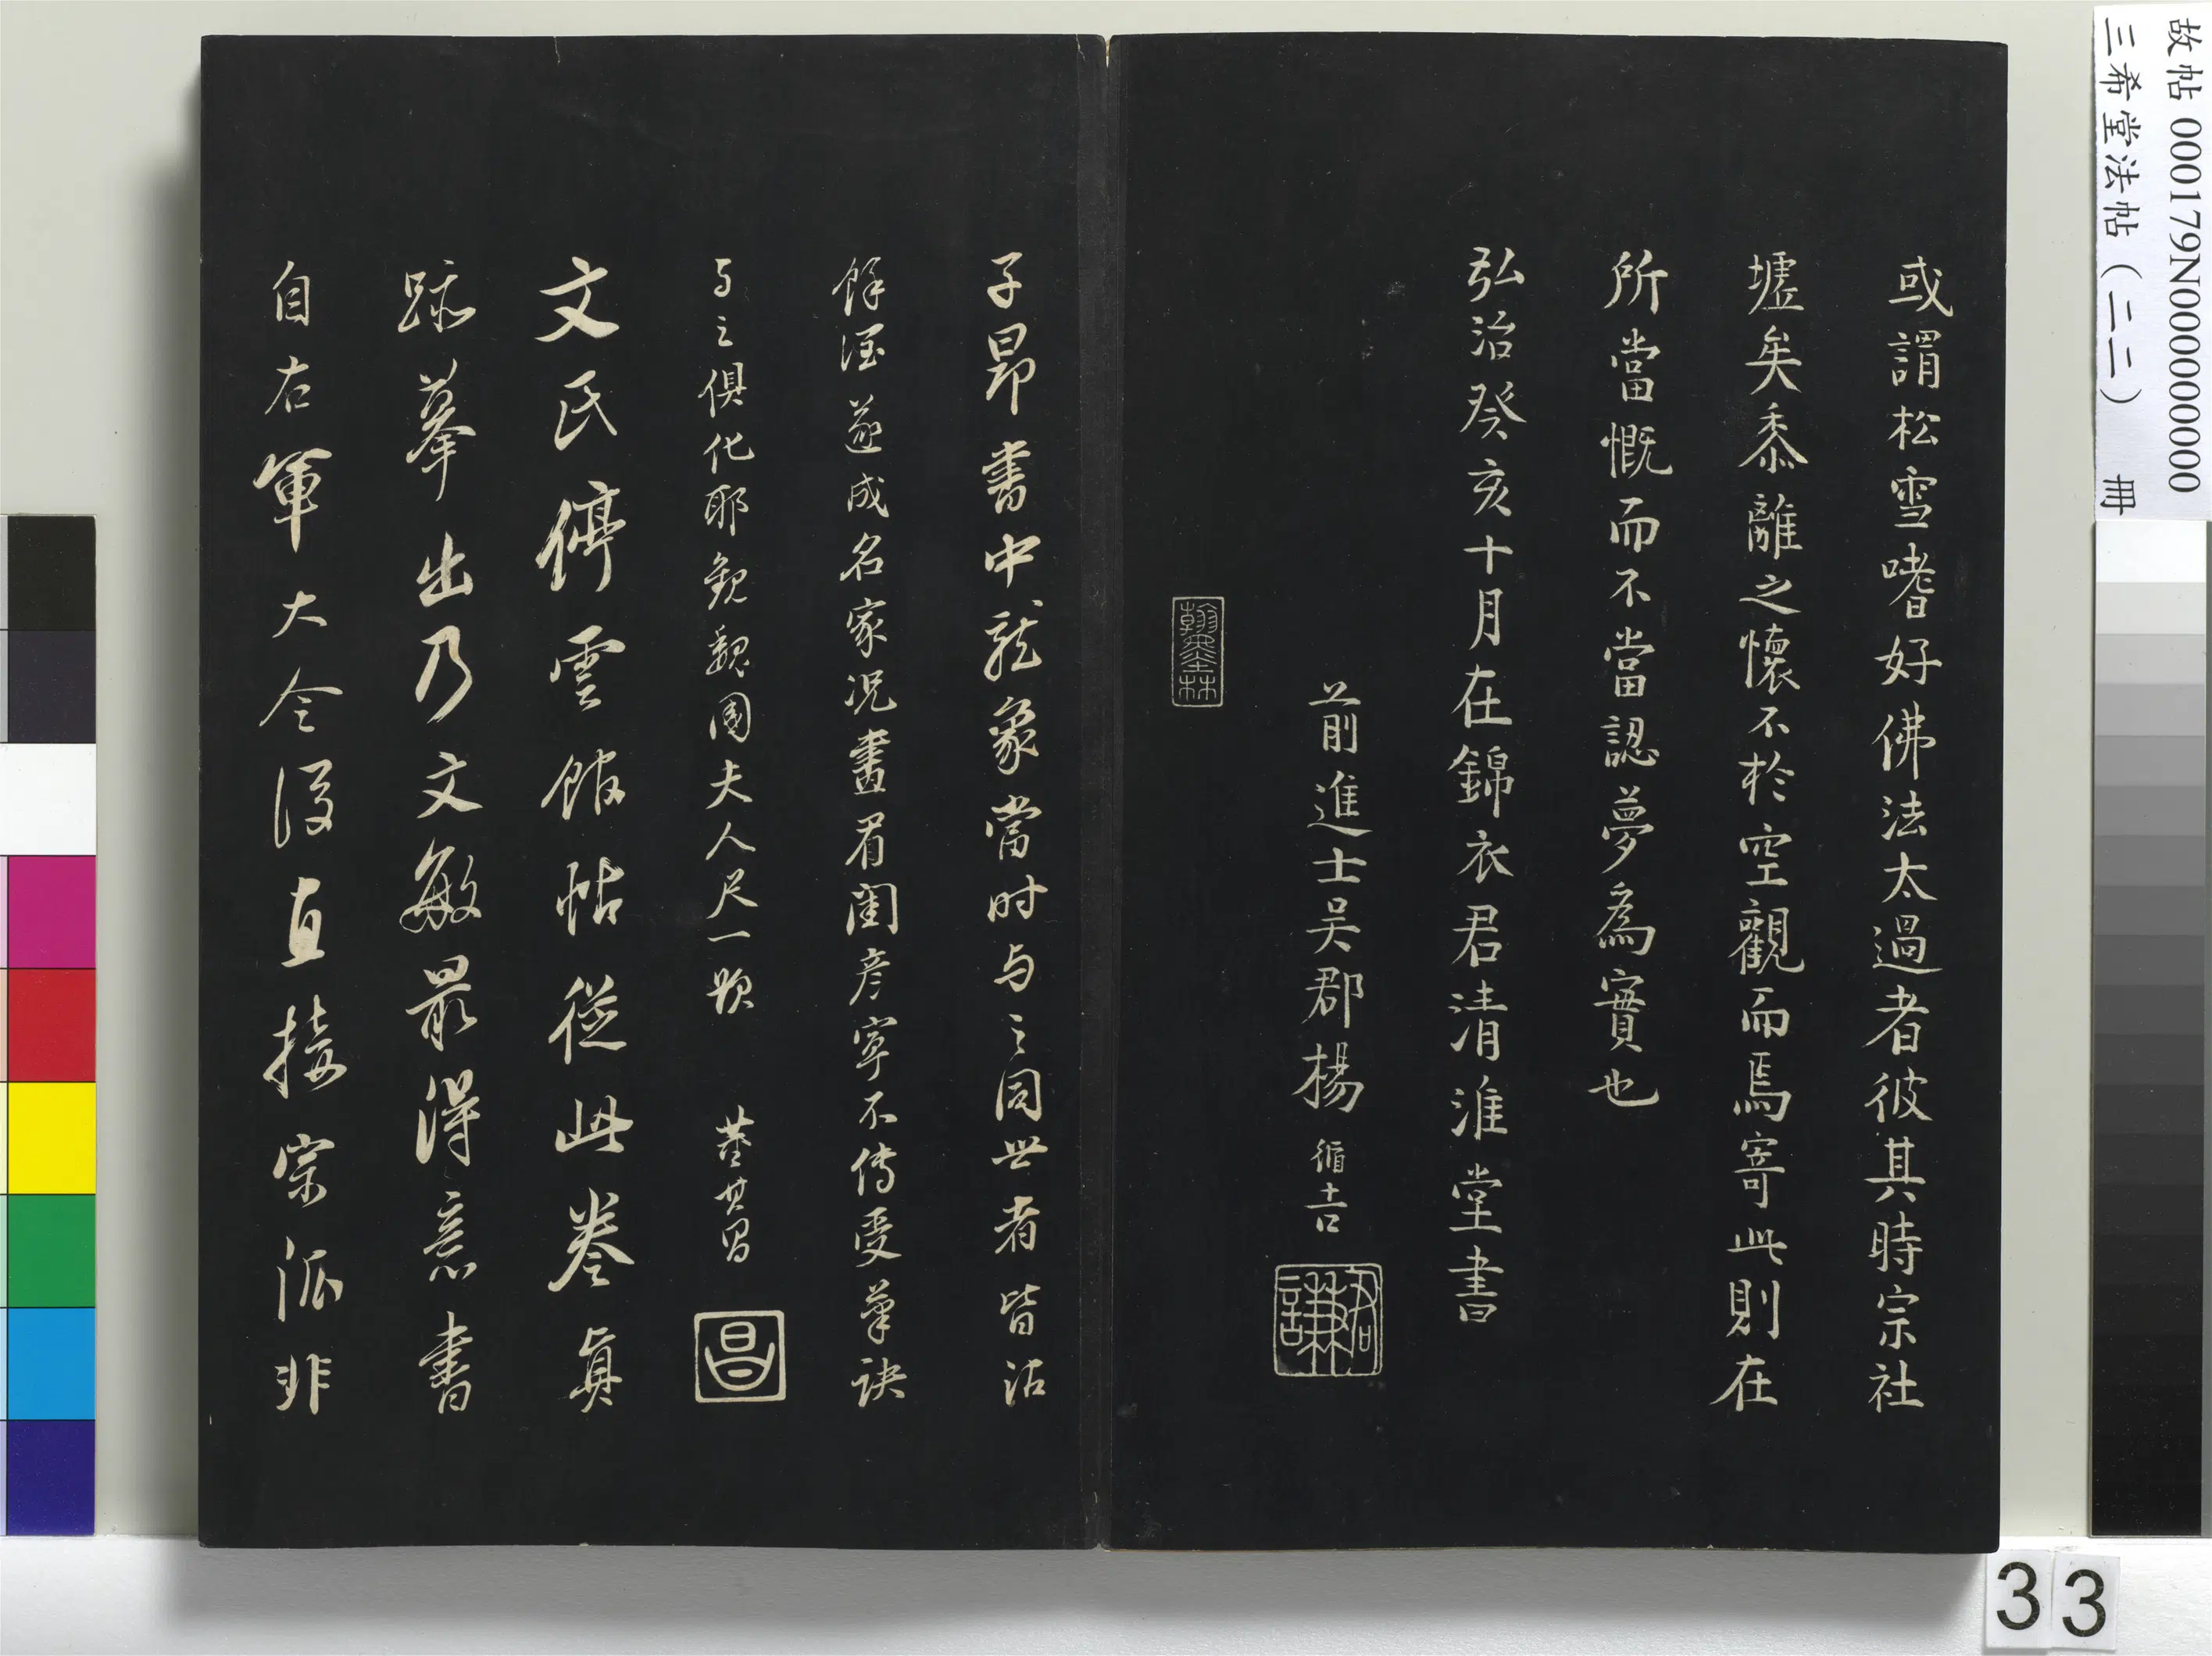 故帖 000179N000000000
三希堂法帖（二二） 冊
或謂松雪嗜好佛法太過者彼其時宗社
墟矣黍離之懷不於空觀而焉寄此則在
所當慨而不當認夢為實也
弘治癸亥十月在錦衣君清淮堂書
前進士吳郡楊循吉
君謙
翰墨林
子昂書中龍象當时与之同世者皆沾
餘瀋遂成名家況畫眉閨彥寧不傳受筆訣
与之俱化耶觀魏國夫人尺一題
董其昌
昌
文氏停雲館帖從此卷真
跡摹出乃文敏最得意書
自右軍大令後直接宗派非
33